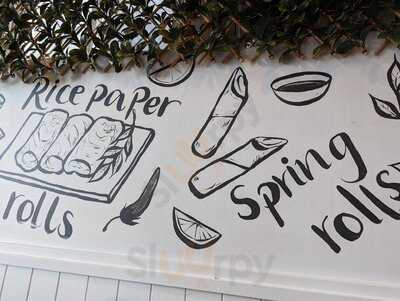 Rice paper
rolls
Spring
rolls
Sluurpy